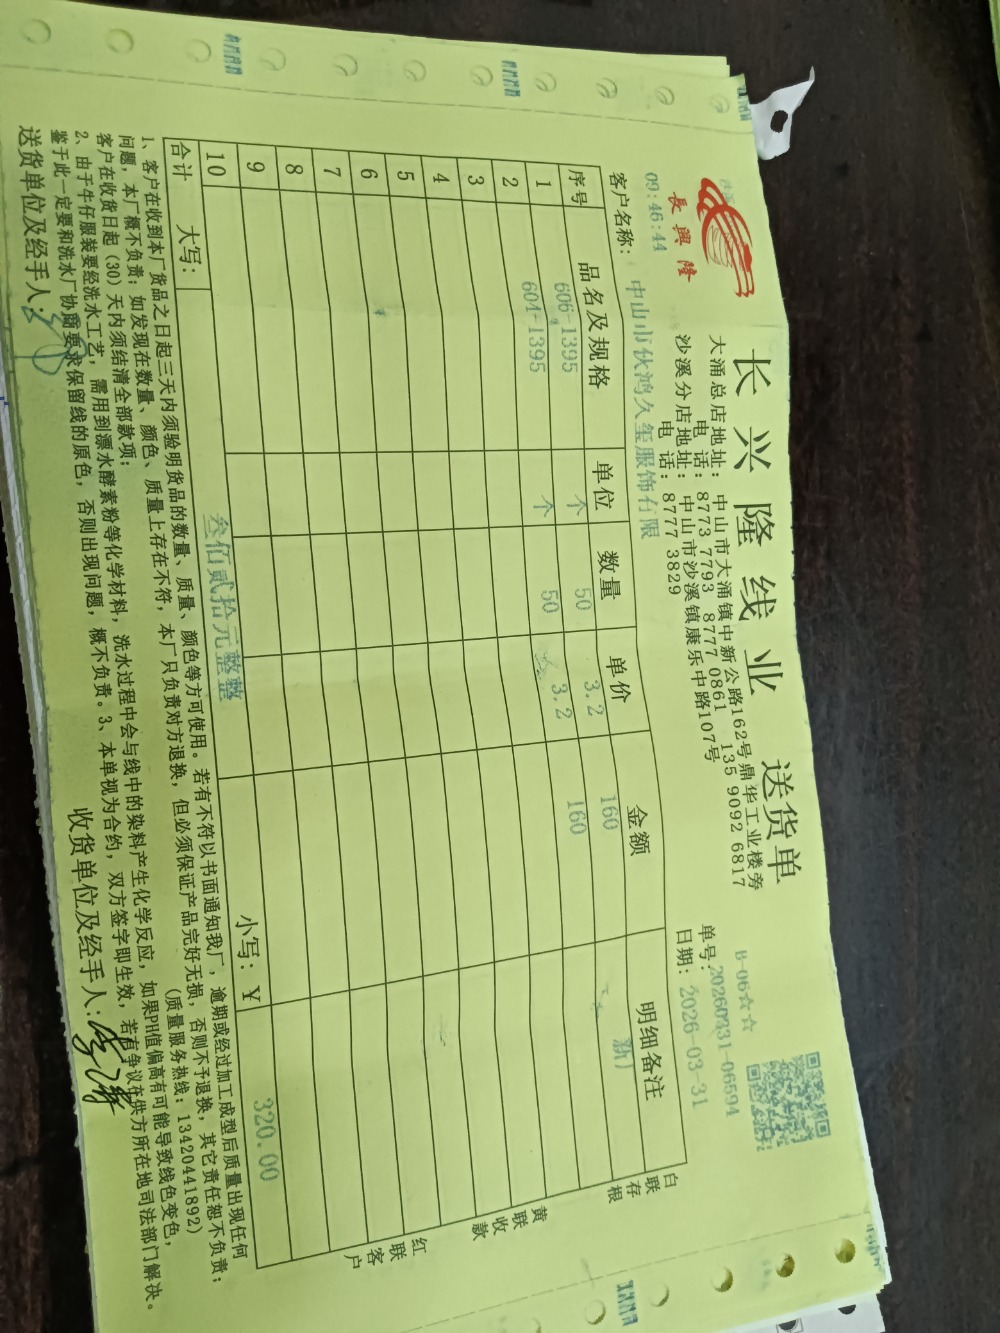 长兴隆线业 送货单
長興隆
大涌总店地址：中山市大涌镇中新公路162号鼎华工业楼旁
电话：8773 7793 8777 0861 135 9092 6817
沙溪分店地址：中山市沙溪镇康乐中路107号
电话：8777 3829
B-06☆☆
单号：20260331-06594
日期：2026-03-31
09:46:44
客户名称：中山市伙鸿久玺服饰有限
序号 品名及规格 单位 数量 单价 金额 明细备注
606-1395 个 50 3.2 160 新厂
1 604-1395 个 50 3.2 160
2
3
4
5
6
7
8
9
10
合计 大写：叁佰贰拾元整整 小写：¥ 320.00
白联存根
黄联收款
红联客户
1、客户在收到本厂货品之日起三天内须验明货品的数量、质量、颜色等方可使用。若有不符以书面通知我厂，逾期或经过加工成型后质量出现任何
问题，本厂概不负责；如发现在数量、颜色、质量上存在不符，本厂只负责对方退换，但必须保证产品完好无损，否则不予退换，其它责任恕不负责；
客户在收货日起（30）天内须结清全部款项；（质量服务热线：13420441892）
2、由于牛仔服装要经洗水工艺，需用到漂水酵素粉等化学材料，洗水过程中会与线中的染料产生化学反应，如果PH值偏高有可能导致线色变色，
鉴于此一定要和洗水厂协商要求保留线的原色，否则出现问题，概不负责。3、本单视为合约，双方签字即生效，若有争议在供方所在地司法部门解决。
送货单位及经手人：
收货单位及经手人：